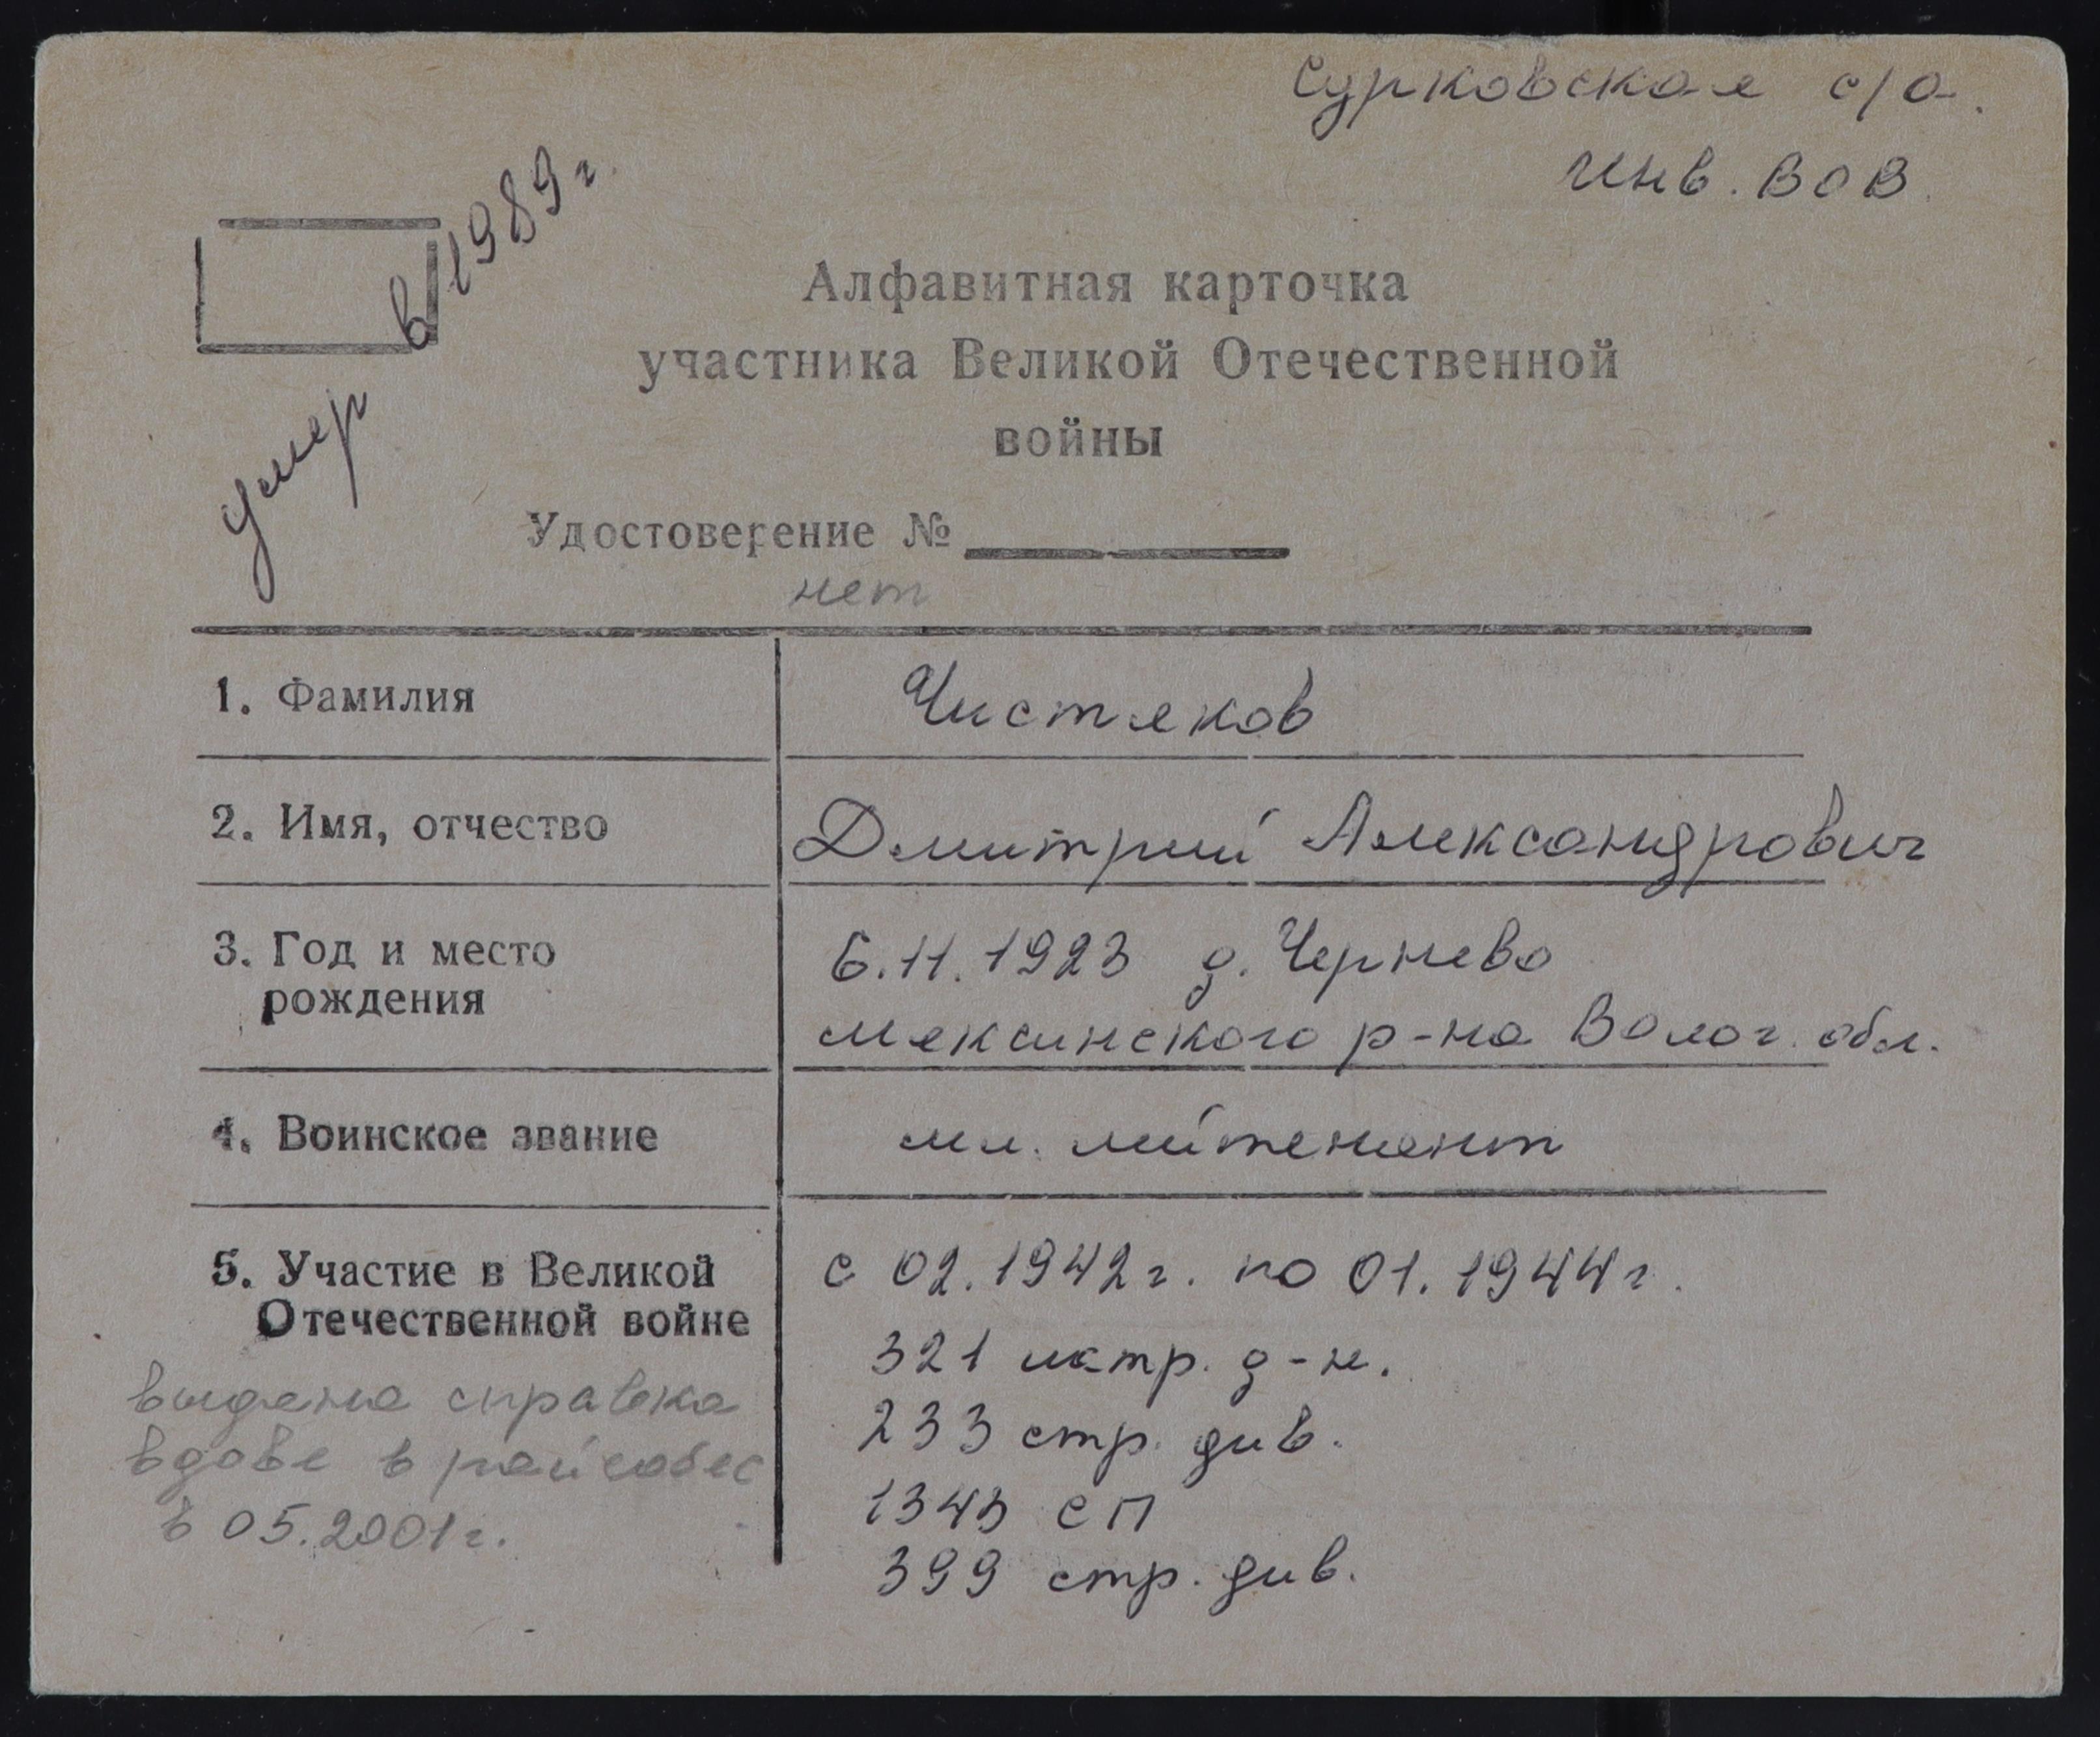 Сурковская с/а.
инв. ВОВ.
умер в 1989 г.
Алфавитная карточка
участника Великой Отечественной
войны
Удостоверение №
нет
1. Фамилия Чистяков
2. Имя, отчество Дмитрий Александрович
3. Год и место 6.11.1923 д. Чернево
рождения Мяксинского р-на Волог. обл.
4. Воинское звание мл. лейтенант
5. Участие в Великой с 02.1942 г. по 01.1944 г.
Отечественной войне
321 истр. д-н.
233 стр. див.
1343 СП
399 стр. див.
выдана справка
вдове в райсобес
в 05.2001 г.